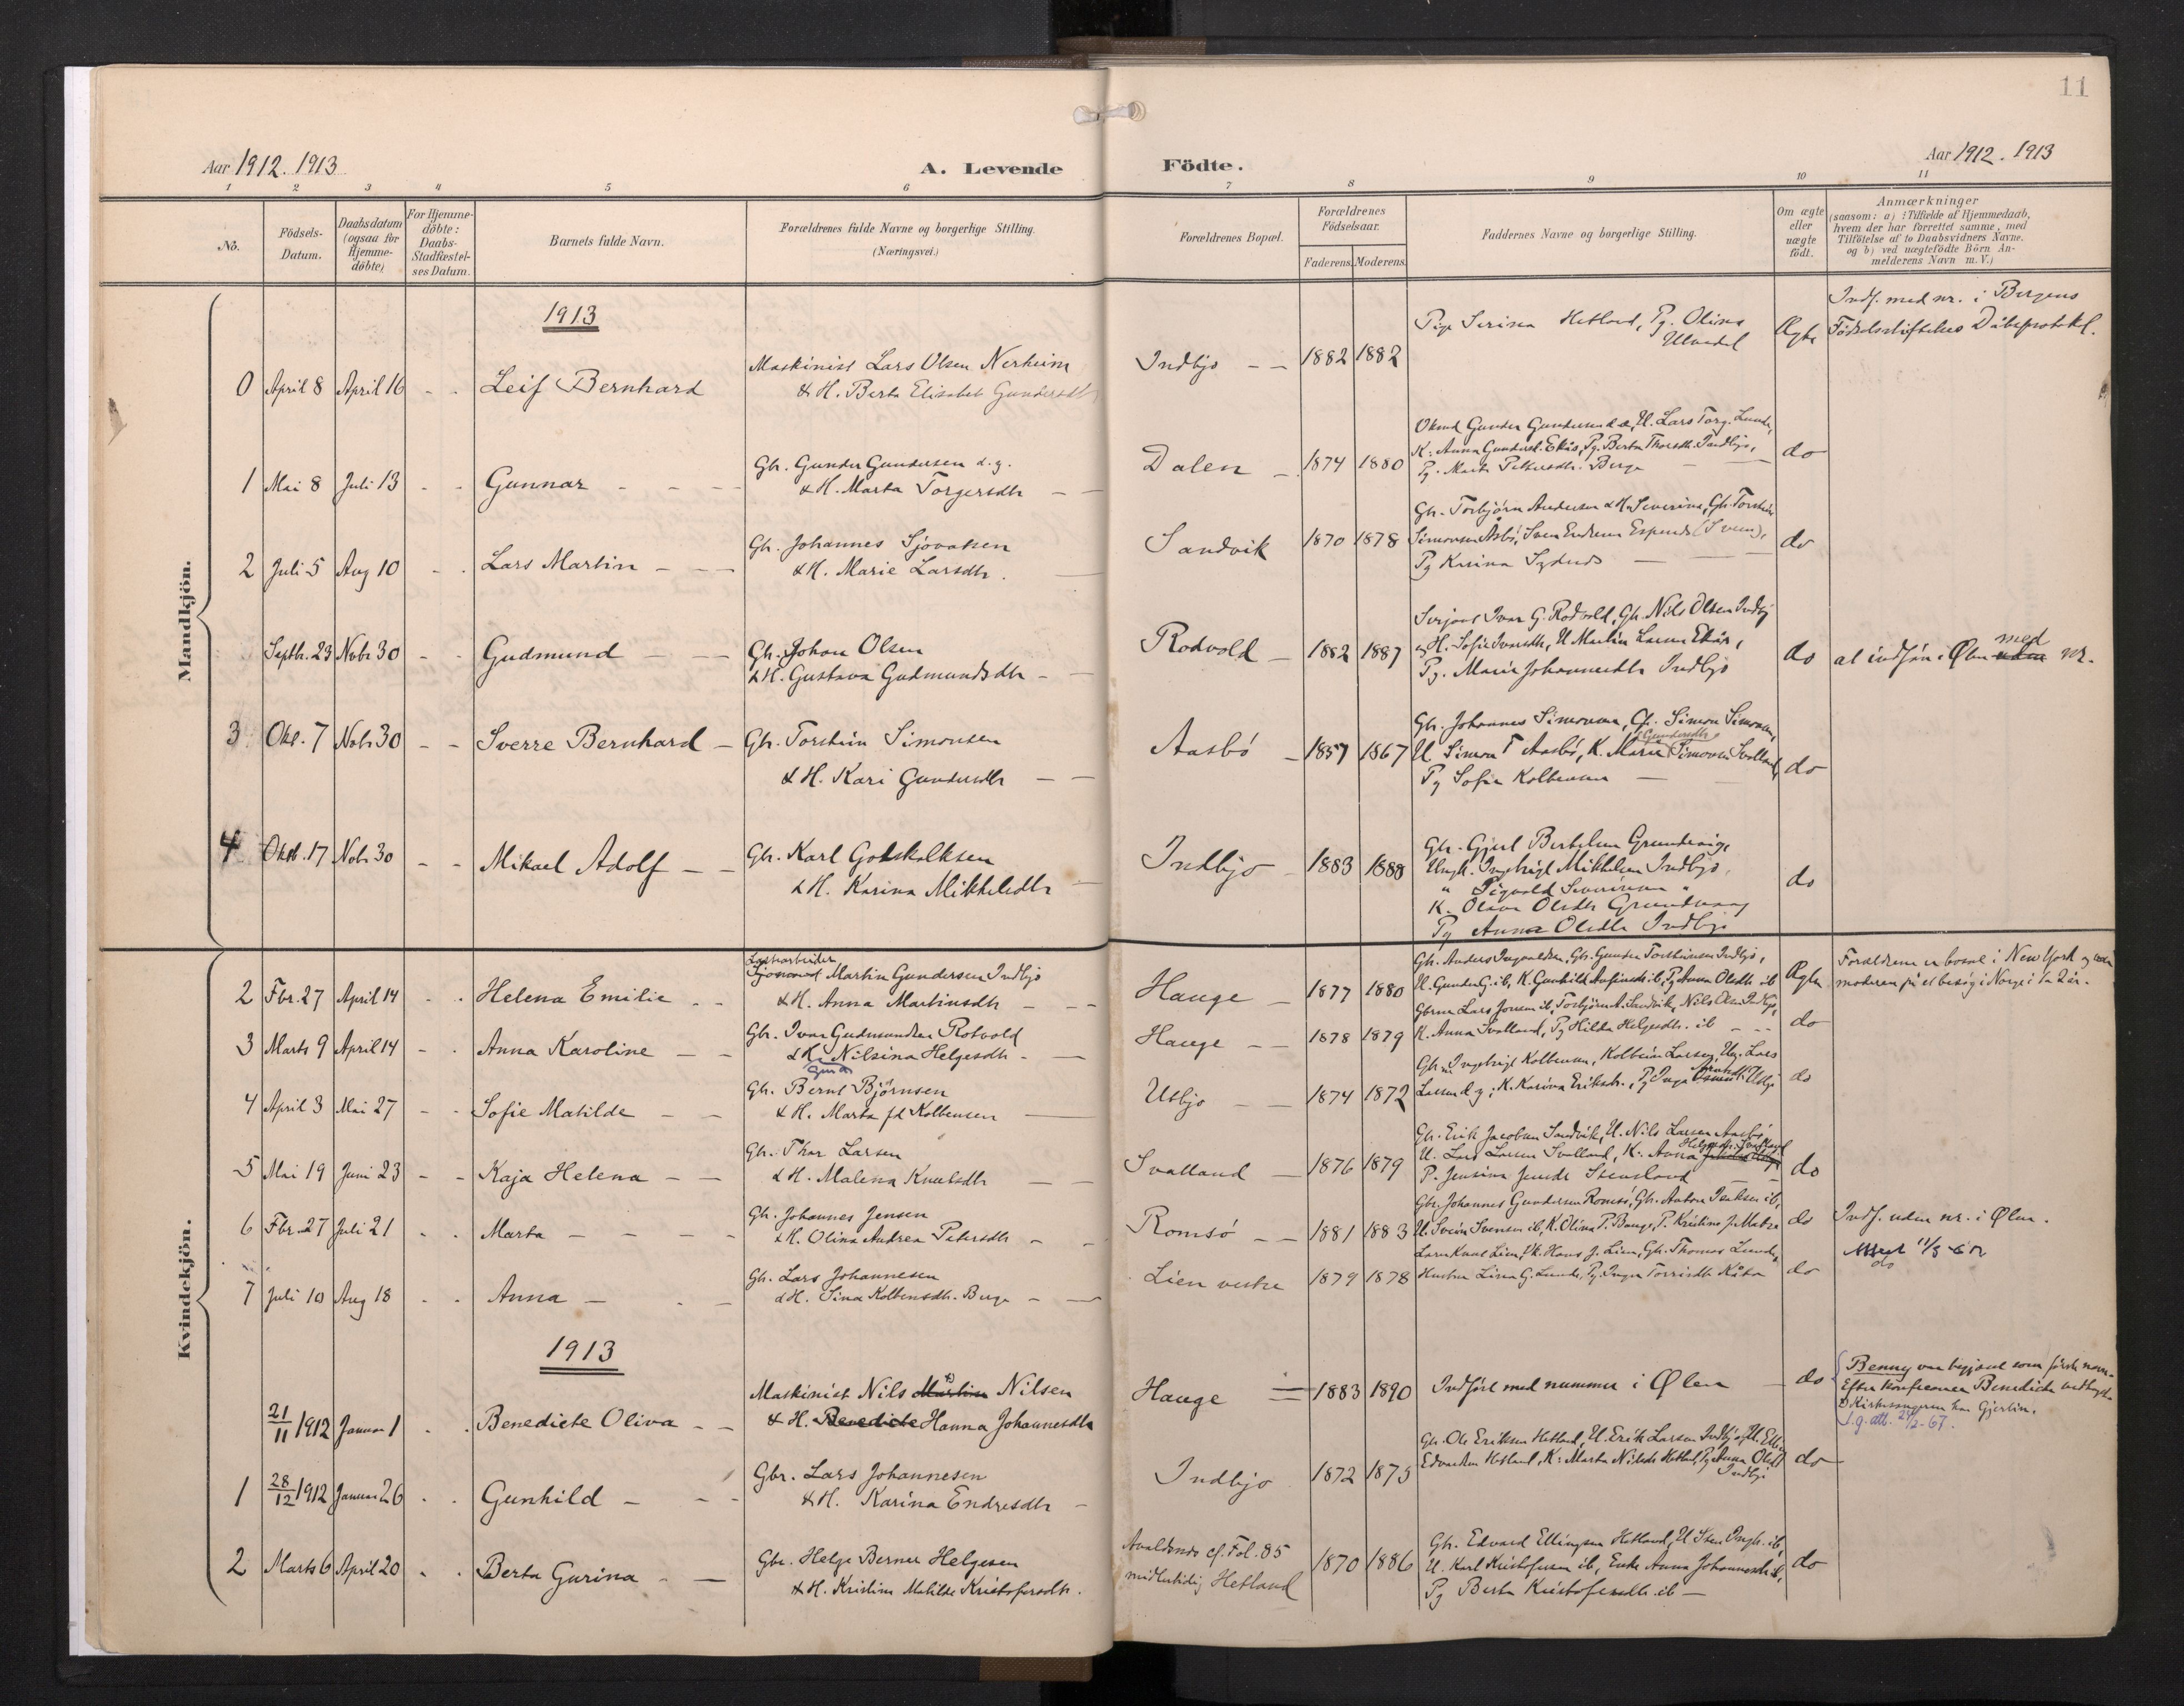 11
Aar 1912. 1913
A. Levende
Födte.
Aar 1912. 1913
1 2 3 4 5 6 7 8 9 10 11
No.
Födsels-
Datum.
Daabsdatum
(ogsaa for
Hjemme-
döbte)
For Hjemme-
döbte:
Daabs-
Stadfæstel-
ses Datum.
Barnets fulde Navn.
Forældrenes fulde Navne og borgerlige Stilling.
(Næringsvei.)
Forældrenes Bopæl.
Forældrenes
Födselsaar.
Faderens. Moderens.
Faddernes Navne og borgerlige Stilling.
Om ægte
eller
uægte
födt.
Anmærkninger
(saasom: a) i Tilfælde af Hjemmedaab,
hvem der har forrettet samme, med
Tilföielse af to Daabsvidners Navne.
og b) ved uægtefödte Börn An-
melderens Navn m. V.)
Mandkjön.
1913
0 April 8 April 16 - - Leif Bernhard
Maskinist Lars Olsen Nerheim
& H. Berta Elisabet Gundersdtr
Indbjo - - 1882 1882
Pige Serina Hetland, Pg. Olina
Ægte
Indf. med nr. i Bergens
Födselsstiftelses Dåbsprotokl.
1 Mai 8 Juli 13 - - Gunnar - - -
Gbr. Gunder Gundersen d.y.
& H. Marta Torgersdtr - -
Dalen - 1874 1880
Gunder Gundersen d.æ., U. Lars Torg. Lunde,
K. Anna Gundersd. Ekås, Pg. Berta Thorsdtr. Indbjo,
Pg. Marta Pettersdtr. Berge
do
2 Juli 5 Aug 10 - - Lars Martin - - -
Gbr. Johannes Sjovatsen
& H. Marie Larsdtr.
Sandvik 1870 1878
Gbr. Torbjörn Andersen & H. Severina, Gbr. Torstein
Simonsen Aasbö, Sven Endresen
Pg Karina
do
Septb. 23 Novbr 30 - - Gudmund - - -
Gbr. Johan Olsen
& H. Gustava Gudmundsdtr -
Rodvold - 1882 1887
Ivar G. Rodvold, Gbr. Nils Olsen Indbj
& H. Sofie Ivarsdtr, U Martin Larsen Ekås,
Pg. Marie Johannesdtr Indbjo
do
at indföres i Ølen uden med nr.
3 Okt. 7 Nobr 30 - - Sverre Bernhard -
Gbr. Torstein Simonsen
& H. Kari Gundersdtr - -
Aasbö - 1857 1867
Gbr. Johannes Simonsen, Gbr. Simon Simonsen,
Gundersdtr
U Simon T Aasbö, K. Marie Simonsen Svolland,
Pg Sofie Kolbensen
do
4 Oktb. 17 Nobr 30 - - Mikael Adolf - -
Gbr. Karl Gotskalksen
& H. Karina Mikkelsdtr
Indbjo - 1883 1888
Gbr. Gjert Bertelsen Grundevig,
Ungk. Ingebrigt Mikkelsen Indbjo,
" Sigvald Severinsen "
K. Olava Olsdtr Grundevaag
Pg Anna Olsdtr Indbjo
do
Kvindekjön.
2 Fbr. 27 April 14 - - Helena Emilie - -
Sjömand Martin Gundersen Indbjo
& H. Anna Martinsdtr - - -
Hauge - 1877 1880
Gbr. Anders Ingvaldsen, Gbr. Gunder Torsteinsen Indbjo,
U. Gunder G. ib, K. Gunhild ib, Pg Anna Olsdtr ib
Ægte
Forældrene er bosat i New York og
moderen på et besög i Norge i 1 a 2 år.
3 Marts 9 April 14 - - Anna Karoline - -
Gbr. Ivar Gudmundsen Rotvold
& H. Nilsina Helgesdtr -
Hauge - - 1878 1879
Gbrne Lars Jonsen ib, Torbjörn A. Sandvik, Nils Olsen Indbjo,
K. Anna Svolland, Pg Hilda Helgesdtr. ib - - -
do
4 April 3 Mai 27 - - Sofie Matilde - -
Gbr. Bernt Björnsen
& H. Marta f. Kolbensen
Utbjo - - 1874 1872
Gbr. Ingebrigt Kolbensen, Kolbein Larsen, Ug. Lars
Larsen d.y., K. Karina Eriksdtr., Pg Inga Utbjo
do
5 Mai 19 Juni 23 - - Kaja Helena - -
Gbr. Thor Larsen
& H. Malena Knutsdtr - -
Svolland - 1876 1879
Gbr. Erik Jacobsen Sandvik, U. Nils Larsen Aasbö
U. Lars Larsen Svolland, K. Anna
P. Jensina Jensdtr Stensland
do
6 Fbr. 27 Juli 21 - - Marta - - - -
Gbr. Johannes Jensen
& H. Olina Andrea Petersdtr - -
Romsö - - 1881 1883
Gbr. Johannes Gundersen Romsö, Gbr. Anton ib,
U. Svein Svensen ib, K. Olina P. Bauge, P. Kristine J. Matre
do
Indf. uden nr. i Ølen.
7 Juli 10 Aug 18 - - Anna - - -
Gbr. Lars Johannesen
& H. Sina Kolbensdtr. Berge - -
Lien vestre 1879 1878
Lars Knut Lien, Hans J. Lien, Gbr. Thomas Lunde,
Hustru Lina G. Lunde, Pg. Inga Torrisdtr Kåta
do
1913
21/11 1912 Januar 1 - - Benedicte Oliva - -
Maskinist Nils Martin Nilsen
& H. Benedicte Hanna Johannesdtr
Hauge = 1883 1890
Indfört med nummer i Ølen - do
Benny var begjæret som förste navn.
Efter konferanse Benedicte
Kirkesangeren har Gjerlin.
1.g. att. 21/2-67.
1 28/12 1912 Januar 26 - - Gunhild - - -
Gbr. Lars Johannesen
& H. Karina Endresdtr -
Indbjo 1872 1875
Gbr. Ole Eriksen Hetland, U. Erik Larsen Indbjo, U. Elling
Edvardsen Hetland, K. Marta Nilsdtr Hetland, Pg Anna Olsdtr
Indbjo
do
2 Marts 6 April 20 - - Berta Gurina - -
Gbr. Helge Berner Helgesen
& H. Kristine Matilde Kristofersdtr.
Avaldsnes cf. Fol. 85
midlertidig Hetland
1870 1886
Gbr. Edvard Ellingsen Hetland, U Sten ib,
U. Karl Kristofersen ib, Enke Anna Johannesdtr ib,
Pg Berta Kristofersdtr. ib -
do